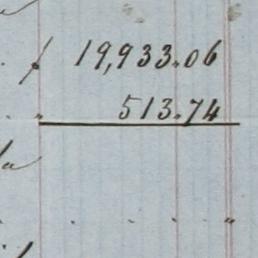 19,933.06
513.74